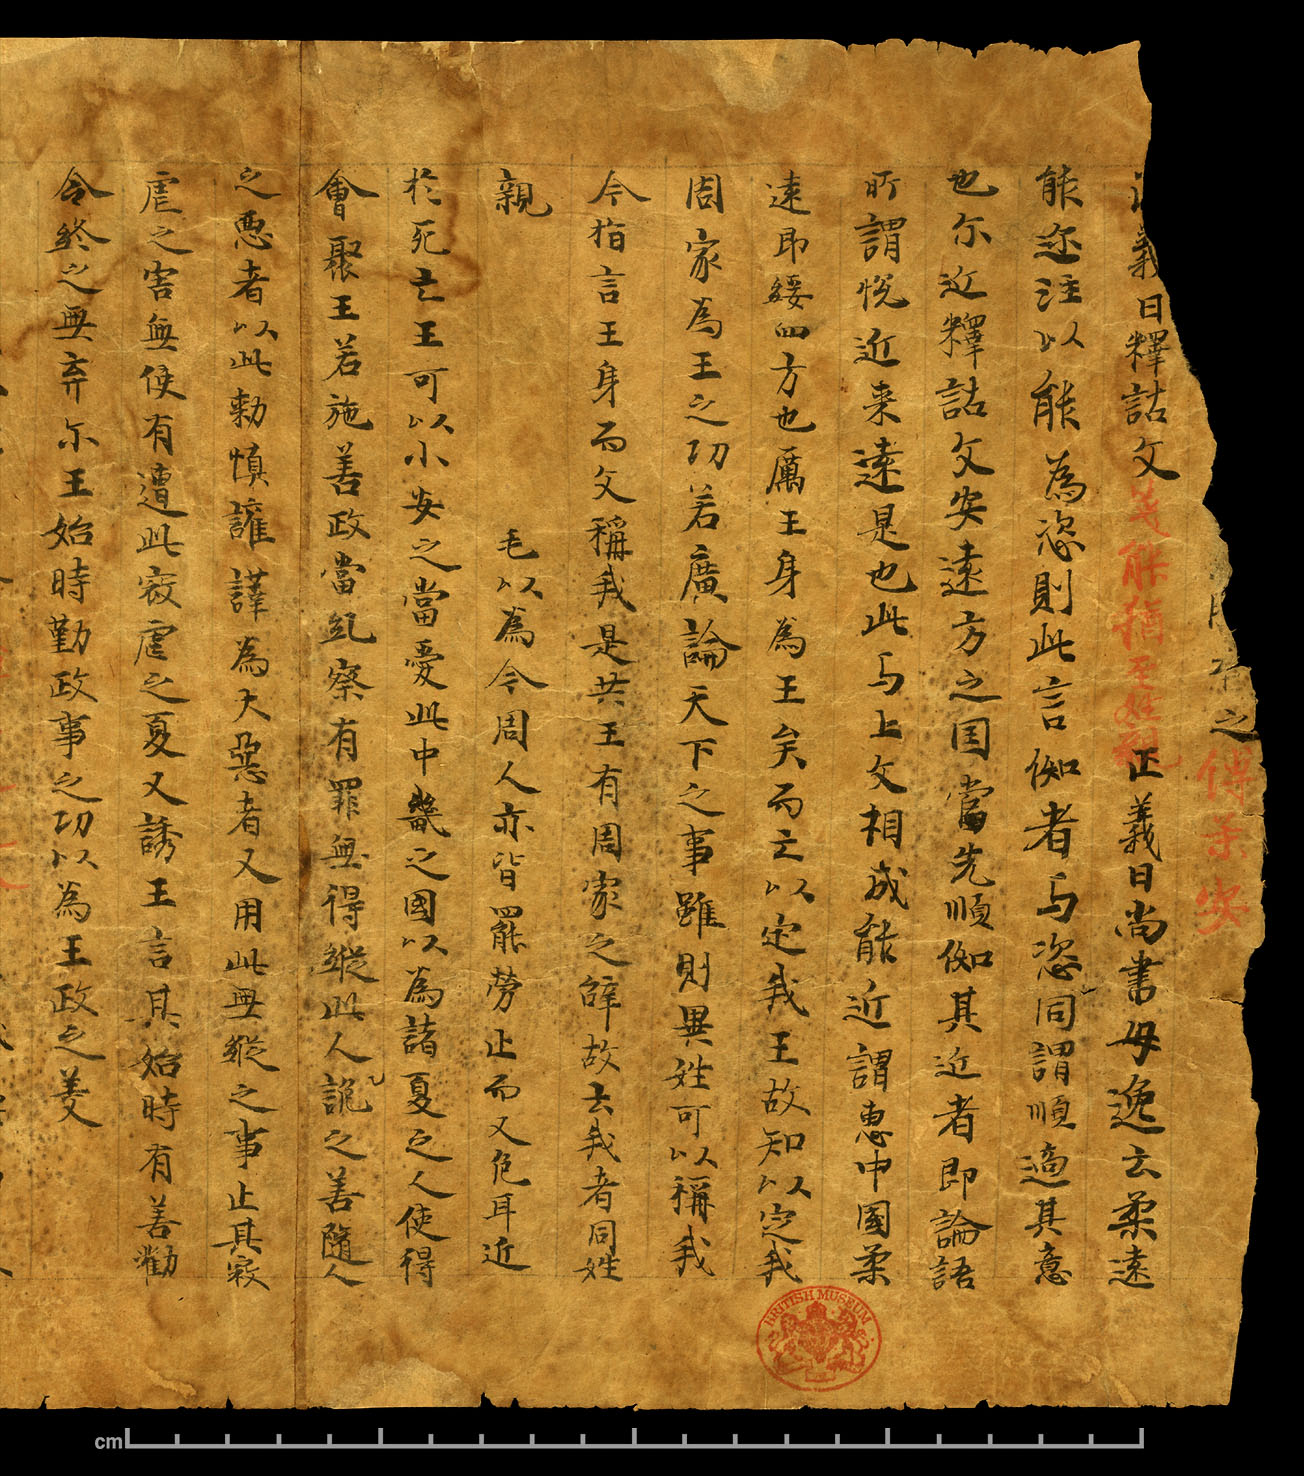 之傳柔安
義曰釋詁文箋能猶至姓親正義曰尚書毋逸云柔遠
能迩注以能為恣則此言伽者与恣同謂順適其意
也尓近釋詁文安遠方之国當先順伽其近者即論語
所謂悅近来遠是也此与上文相成能近謂惠中國柔
遠即綏四方也厲王身為王矣而云以定我王故知以定我
周家為王之功若廣論天下之事雖則異姓可以稱我
今指言王身而文稱我是共王有周家之辞故云我者同姓
親毛以為今周人亦皆罷勞止而又危耳近
於死亡王可以小安之當憂此中畿之國以為諸夏之人使得
會聚王若施善政當糺察有罪無得縱此人詭之善隨人
之惡者以此勅慎讙譁為大惡者又用此無縱之事止其寇
虐之害無使有遭此寇虐之憂又誘王言其始時有善勸
令終之無弃尓王始時勤政事之功以為王政之美